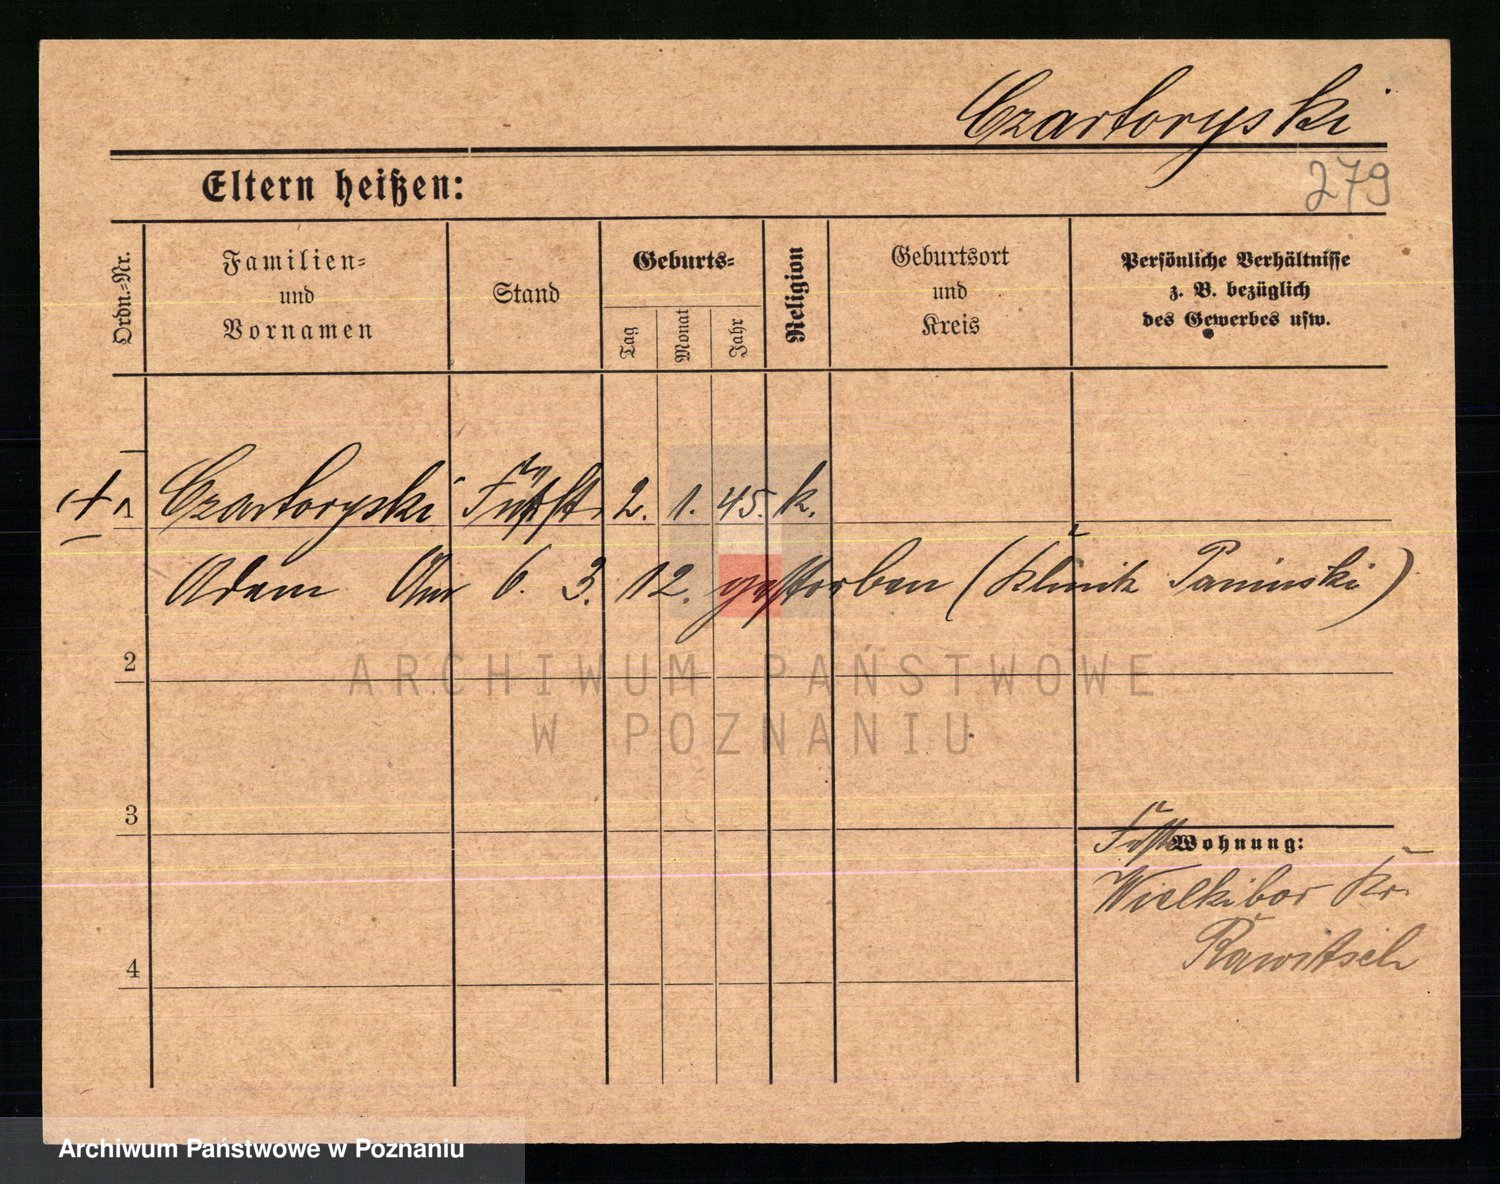 Czartoryski
279
Eltern heißen:
Ordn.-Nr.
Familien-
und
Vornamen
Stand
Geburts-
Tag
Monat
Jahr
Religion
Geburtsort
und
Kreis
Persönliche Verhältnisse
z. B. bezüglich
des Gewerbes usw.
1 Czartoryski Fürst 2. 1. 45. k.
Adam Am 6. 3. 12. gestorben (Klinik Paninski)
2
ARCHIWUM PAŃSTWOWE
W POZNANIU
3
Wohnung:
Wielkibor Kr.
Rawitsch
4
Archiwum Państwowe w Poznaniu